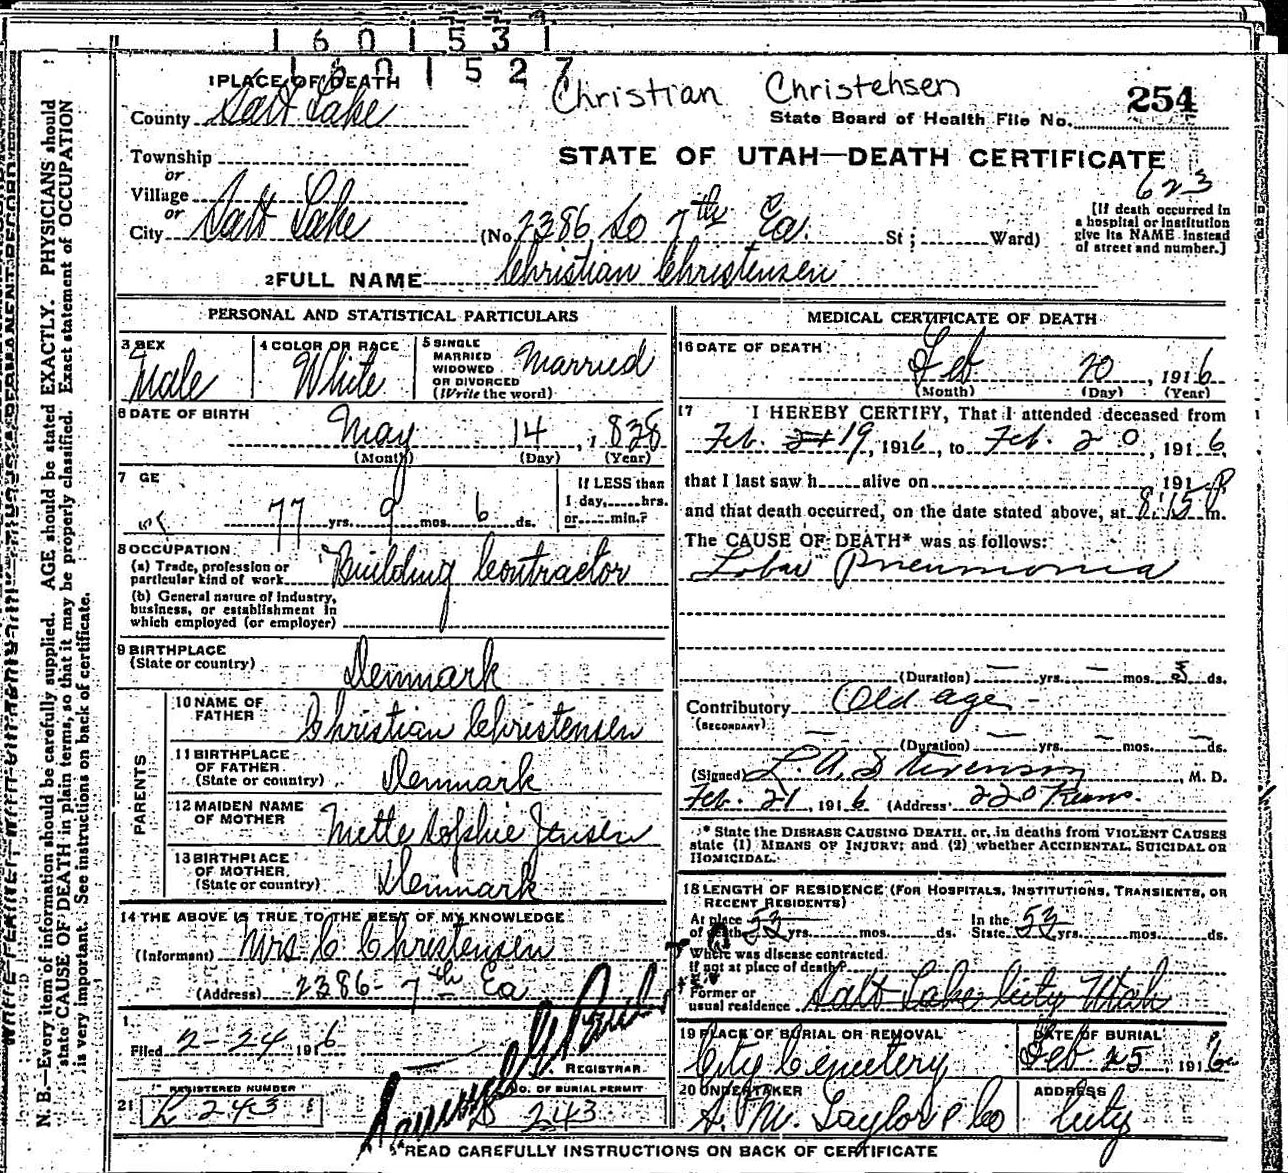 1601531
1601527
Christian Christensen
254
1 PLACE OF DEATH
County Salt Lake
State Board of Health File No.
Township
or
Village
or
City Salt Lake
STATE OF UTAH—DEATH CERTIFICATE
623
(No. 2386 So 7th Ea. St; Ward)
[If death occurred in
a hospital or institution
give its NAME instead
of street and number.]
2 FULL NAME Christian Christensen
PERSONAL AND STATISTICAL PARTICULARS
3 SEX
Male
4 COLOR OR RACE
White
5 SINGLE
MARRIED
WIDOWED
OR DIVORCED
(Write the word)
Married
6 DATE OF BIRTH
May 14, 1838
(Month) (Day) (Year)
7 GE
77 yrs. 9 mos. 6 ds.
If LESS than
1 day, hrs.
or min.?
8 OCCUPATION
(a) Trade, profession or
particular kind of work Building Contractor
(b) General nature of industry,
business, or establishment in
which employed (or employer)
9 BIRTHPLACE
(State or country)
Denmark
PARENTS
10 NAME OF
FATHER
Christian Christensen
11 BIRTHPLACE
OF FATHER
(State or country)
Denmark
12 MAIDEN NAME
OF MOTHER
Mette Sophie Jensen
13 BIRTHPLACE
OF MOTHER
(State or country)
Denmark
14 THE ABOVE IS TRUE TO THE BEST OF MY KNOWLEDGE
(Informant) Mrs C Christensen
(Address) 2386- 7th Ea
Filed 2-24 1916
REGISTRAR
REGISTERED NUMBER
21 L243
NO. OF BURIAL PERMIT
243
MEDICAL CERTIFICATE OF DEATH
16 DATE OF DEATH
Feb 20, 1916
(Month) (Day) (Year)
17 I HEREBY CERTIFY, That I attended deceased from
Feb. 19, 1916, to Feb. 20, 1916,
that I last saw h alive on 191
and that death occurred, on the date stated above, at 8:15 P m.
The CAUSE OF DEATH* was as follows:
Lobar Pneumonia
(Duration) — yrs. — mos. 5 ds.
Contributory Old age -
(SECONDARY)
(Duration) — yrs. — mos. — ds.
(Signed) L. A. Stevenson, M. D.
Feb. 21, 1916 (Address 220 Kearns.
* State the DISEASE CAUSING DEATH, or, in deaths from VIOLENT CAUSES
state (1) MEANS OF INJURY; and (2) whether ACCIDENTAL, SUICIDAL OR
HOMICIDAL.
18 LENGTH OF RESIDENCE (FOR HOSPITALS, INSTITUTIONS, TRANSIENTS, OR
RECENT RESIDENTS)
At place
of death 53 yrs. mos. ds.
In the
State 53 yrs. mos. ds.
Where was disease contracted.
If not at place of death?
Former or
usual residence Salt Lake City Utah
19 PLACE OF BURIAL OR REMOVAL
City Cemetery
DATE OF BURIAL
Feb 25, 1916
20 UNDERTAKER
S. M. Taylor & Co
ADDRESS
City
*READ CAREFULLY INSTRUCTIONS ON BACK OF CERTIFICATE
N. B.—Every item of information should be carefully supplied. AGE should be stated EXACTLY. PHYSICIANS should
state CAUSE OF DEATH in plain terms, so that it may be properly classified. Exact statement of OCCUPATION
is very important. See instructions on back of certificate.